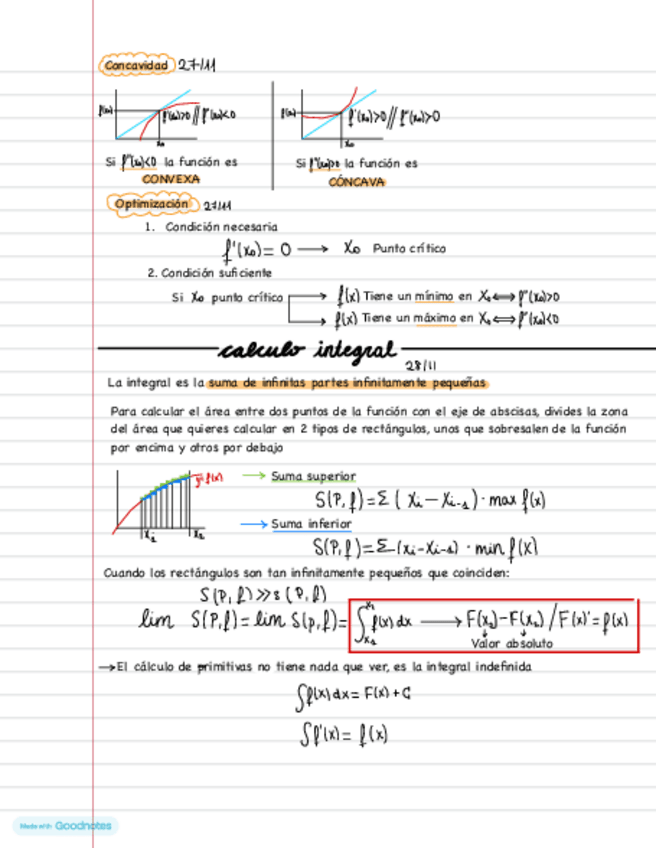 Concavidad 27/11
f(x₀) f'(x₀)>0 // f''(x₀)<0 x₀
f(x₀) f'(x₀)>0 // f''(x₀)>0 x₀
Si f''(x₀)<0 la función es
CONVEXA
Si f''(x₀)>0 la función es
CÓNCAVA
Optimización 27/11
1. Condición necesaria
f'(x₀) = 0 → x₀ Punto crítico
2. Condición suficiente
Si x₀ punto crítico → f(x) Tiene un mínimo en x₀ ⟺ f''(x₀)>0
→ f(x) Tiene un máximo en x₀ ⟺ f''(x₀)<0
calculo integral
28/11
La integral es la suma de infinitas partes infinitamente pequeñas
Para calcular el área entre dos puntos de la función con el eje de abscisas, divides la zona
del área que quieres calcular en 2 tipos de rectángulos, unos que sobresalen de la función
por encima y otros por debajo
y=f(x) → Suma superior
S(P, f) = Σ (xᵢ − xᵢ₋₁) · max f(x)
x₁ x₂ → Suma inferior
S(P, f) = Σ (xᵢ − xᵢ₋₁) · min f(x)
Cuando los rectángulos son tan infinitamente pequeños que coinciden:
S(P, f) >> s(P, f)
lim S(P, f) = lim S(p, f) = ∫ f(x) dx → F(x₂) − F(x₁) / F(x)' = f(x)
Valor absoluto
→ El cálculo de primitivas no tiene nada que ver, es la integral indefinida
∫f(x) dx = F(x) + C
∫f'(x) = f(x)
Made with Goodnotes